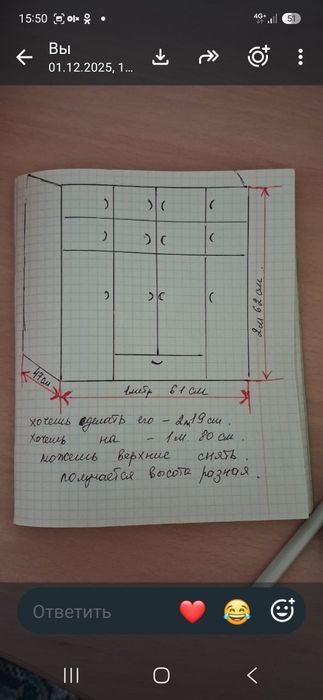 15:50 olx 4G+ 51
Вы
01.12.2025, 1...
47 см
1 метр 61 см
2 м 62 см.
хочешь сделать его - 2м 19 см.
хочешь на - 1 м 80 см.
можешь верхние снять.
получается высота разная.
Ответить